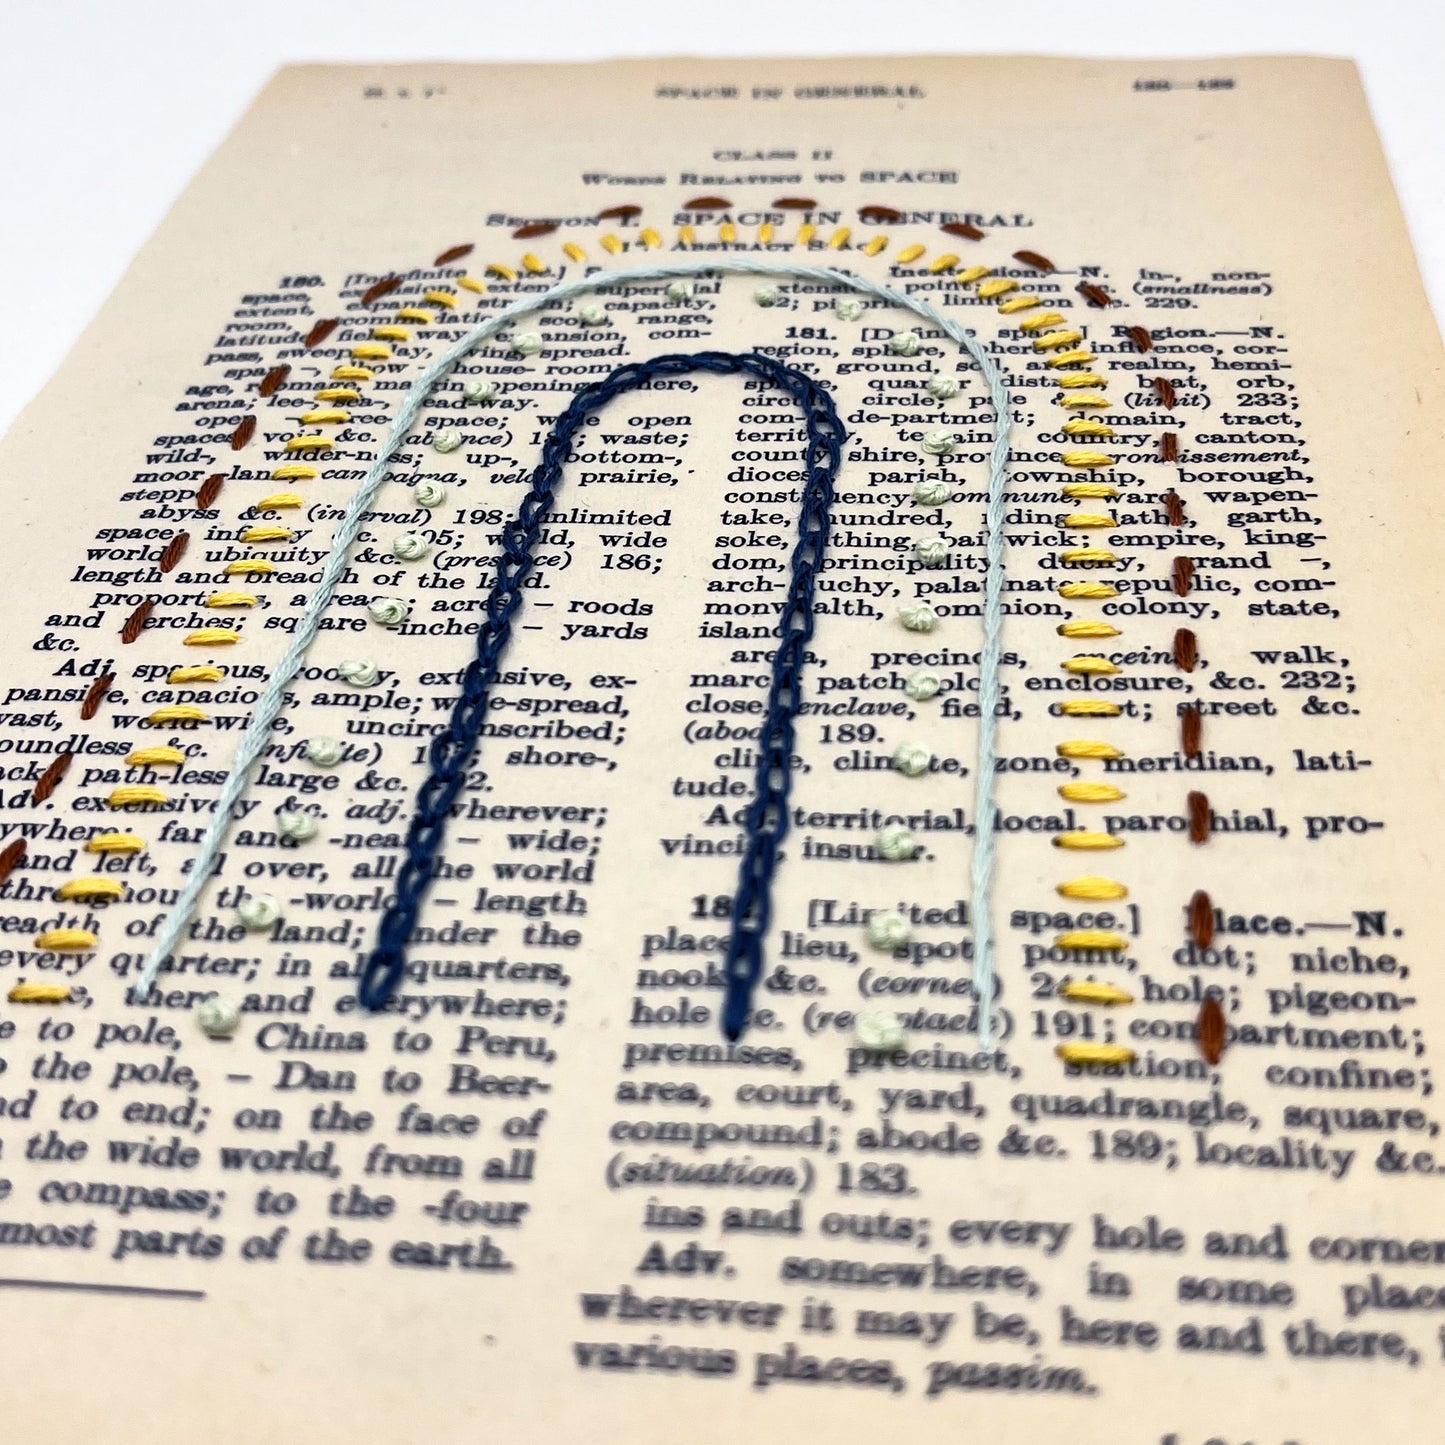 SPACE IN GENERAL
CLASS II
Words Relating to SPACE
Section I. SPACE IN GENERAL
1° Abstract Space
180. [Indefinite space.]
space, extension,
extent, expanse, stretch; capacity,
room, accommodation, scope, range,
latitude, field, way, expansion, com-
pass, sweep, play, swing, spread.
house-room
age, roomage, margin; opening, sphere,
arena; lee-, sea-, head-way.
open free waste; wide open
spaces; void &c. (absence) 187; waste;
wild-, wilder-ness; up-, bottom-,
moor-land, campagna, veldt, prairie,
steppe
abyss &c. (interval) 198; unlimited
space; infinity &c. 105; world, wide
world; ubiquity &c. (presence) 186;
length and breadth of the land.
proportions, acreage; acres, – roods
and perches; square -inches, – yards
&c.
Adj. spacious, roomy, extensive, ex-
pansive, capacious, ample; wide-spread,
vast, world-wide, uncircumscribed;
boundless &c. (infinite) 105; shore-,
path-less; large &c.
Adv. extensively &c. adj.; wherever;
everywhere; far and -near, – wide;
and left, all over, all the world
throughout the -world, – length
breadth of the land; under the
every quarter; in all quarters,
there and everywhere;
to pole, – China to Peru,
the pole, – Dan to Beer-
end to end; on the face of
the wide world, from all
compass; to the -four
most parts of the earth.
Inextension.—N. in-, non-
extension; point; atom &c. (smallness)
limitation &c. 229.
181. [Definite space.] Region.—N.
region, sphere, sphere of influence, cor-
ridor, ground, soil, area, realm, hemi-
sphere, quarter, district, beat, orb,
circuit, circle; pale &c. (limit) 233;
com- de-partment; domain, tract,
territory, terrain, country, canton,
county, shire, province, arrondissement,
diocese, parish, township, borough,
constituency, commune, ward, wapen-
take, hundred, riding, lathe, garth,
soke, tithing, bailiwick; empire, king-
dom, principality, duchy, grand –,
arch-duchy, palatinate; republic, com-
monwealth, dominion, colony, state,
island.
arena, precincts, enceinte, walk,
march; patch, plot, enclosure, &c. 232;
close, enclave, field, court; street &c.
(abode) 189.
clime, climate, zone, meridian, lati-
tude.
Adj. territorial, local, parochial, pro-
vincial, insular.
182. [Limited space.] Place.—N.
place, lieu, spot, point, dot; niche,
nook &c. (corner) 244; hole; pigeon-
hole &c. (receptacle) 191; compartment;
premises, precinct, station, confine;
area, court, yard, quadrangle, square,
compound; abode &c. 189; locality &c.
(situation) 183.
ins and outs; every hole and corner
Adv. somewhere, in some place,
wherever it may be, here and there,
various places, passim.